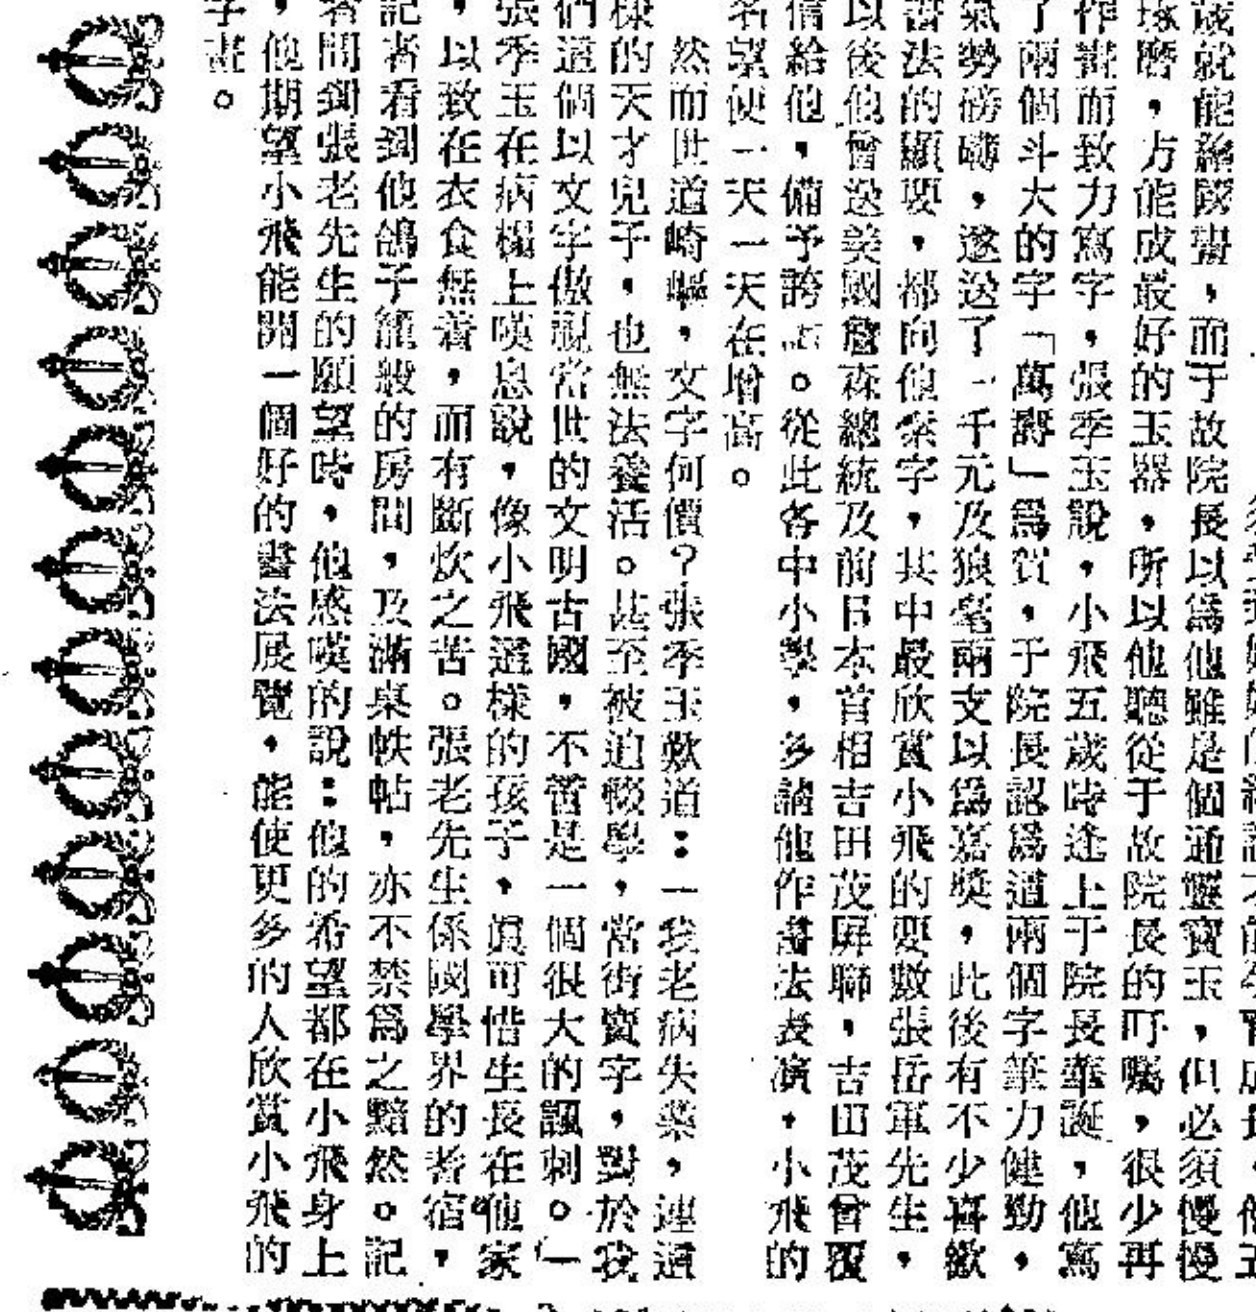 歲就能繪隊畫，而于故院長以爲他雖是個通靈寶玉，但必須慢慢
琢磨，方能成最好的玉器，所以他聽從于故院長的叮囑，很少再
作畫而致力寫字，張季玉說，小飛五歲時逢上于院長華誕，他寫
了兩個斗大的字「萬壽」爲賀，于院長認爲這兩個字筆力健勁，
氣勢磅礴，遂送了一千元及狼毫兩支以爲嘉獎，此後有不少喜歡
書法的顯要，都向他索字，其中最欣賞小飛的要數張岳軍先生，
以後他曾送美國詹森總統及前日本首相吉田茂屏聯，吉田茂曾覆
信給他，備予誇。從此各中小學，多請他作書法表演，小飛的
名望便一天一天在增高。
然而世道崎嶇，文字何價？張季玉歎道：「我老病失業，連這
樣的天才兒子，也無法養活。甚至被迫輟學，當街賣字，對於我
們這個以文字傲視當世的文明古國，不啻是一個很大的諷刺。」
張季玉在病榻上嘆息說，像小飛這樣的孩子，眞可惜生長在他家
，以致在衣食無着，而有斷炊之苦。張老先生係國學界的耆宿，
記者看到他鴿子籠般的房間，及滿桌帙帖，亦不禁爲之黯然。記
者問到張老先生的願望時，他感嘆的說：他的希望都在小飛身上
，他期望小飛能開一個好的書法展覽，能使更多的人欣賞小飛的
字畫。